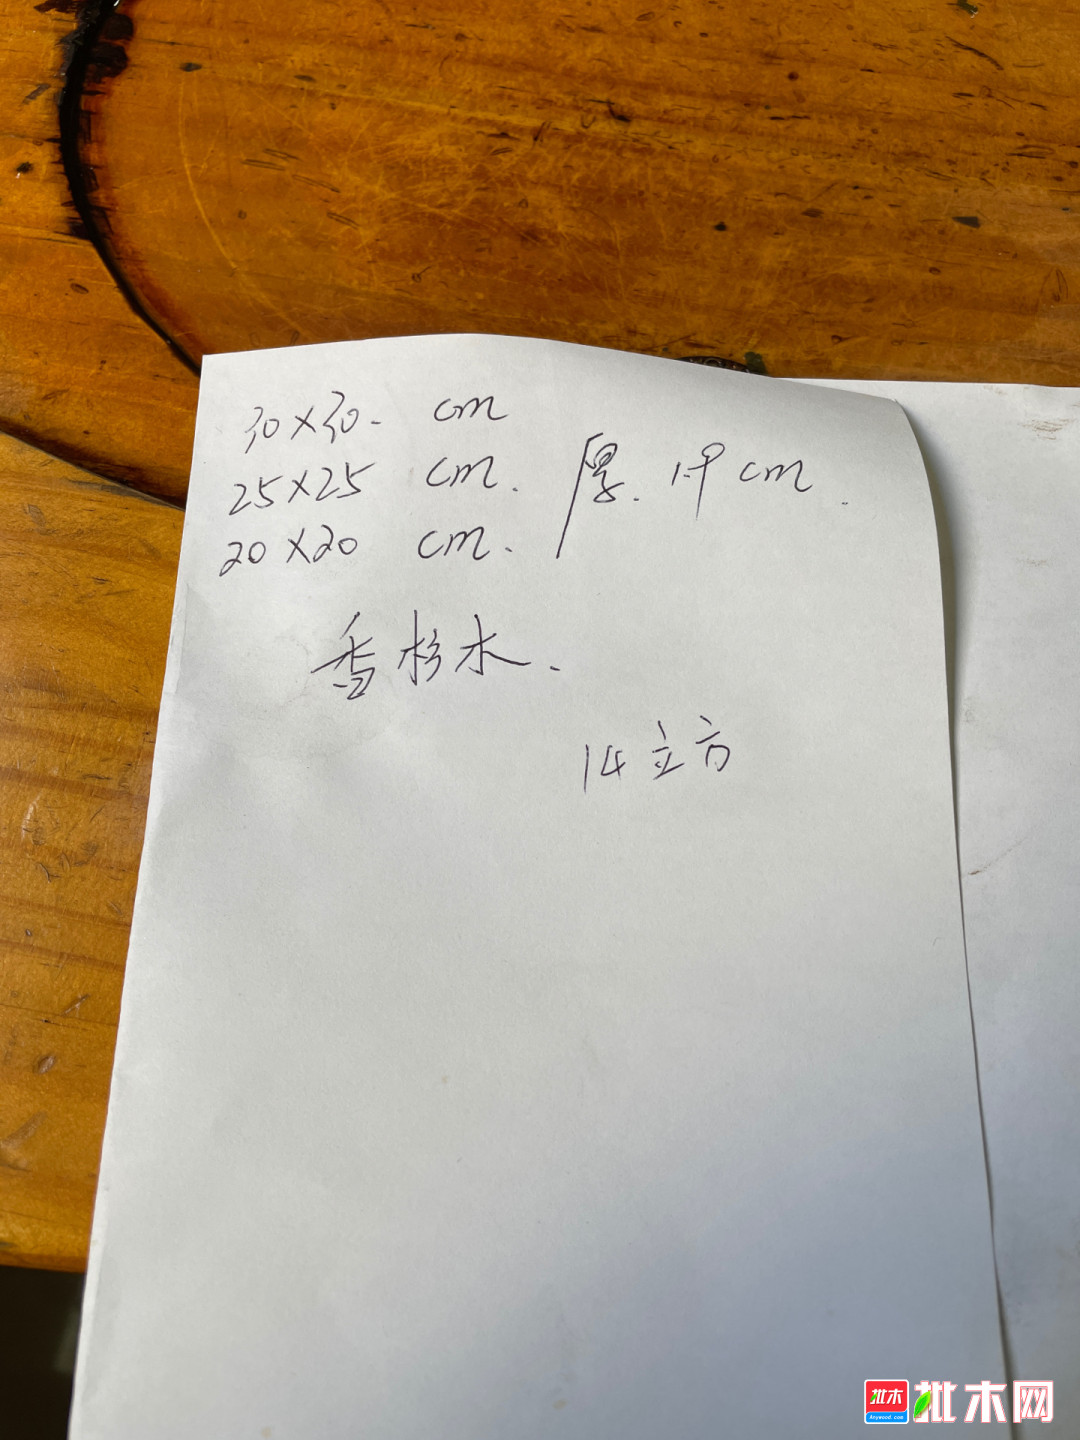 30×30. cm
25×25 cm. 厚. cm.
20×20 cm.
香杉木.
14立方
批木 批木网
Anywood.com